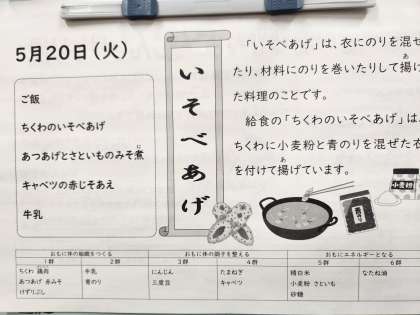 5月20日（火）
ご飯
ちくわのいそべあげ
あつあげとさといものみそ煮
に
キャベツの赤じそあえ
牛乳
いそべあげ
「いそべあげ」は、衣にのりを混ぜ
たり、材料にのりを巻いたりして揚げ
あ
た料理のことです。
給食の「ちくわのいそべあげ」は、
ちくわに小麦粉と青のりを混ぜた衣
を付けて揚げています。
あ
小麦粉
青のり
おもに体の組織をつくる
おもに体の調子を整える
おもにエネルギーとなる
1群 2群 3群 4群 5群 6群
ちくわ 鶏肉 牛乳 にんじん たまねぎ 精白米 なたね油
あつあげ 赤みそ 青のり 三度豆 キャベツ 小麦粉 さといも
けずりぶし 砂糖